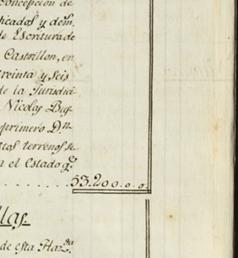 Concepcion de
ficados y dem.
de Escritura de
Castrillon, en
treinta y seis
de la Jurisdici
Nicolas
primero Dn.
terrenos
a el Estado q.e
53.200.0.0.
llas.
de esta Haz.da